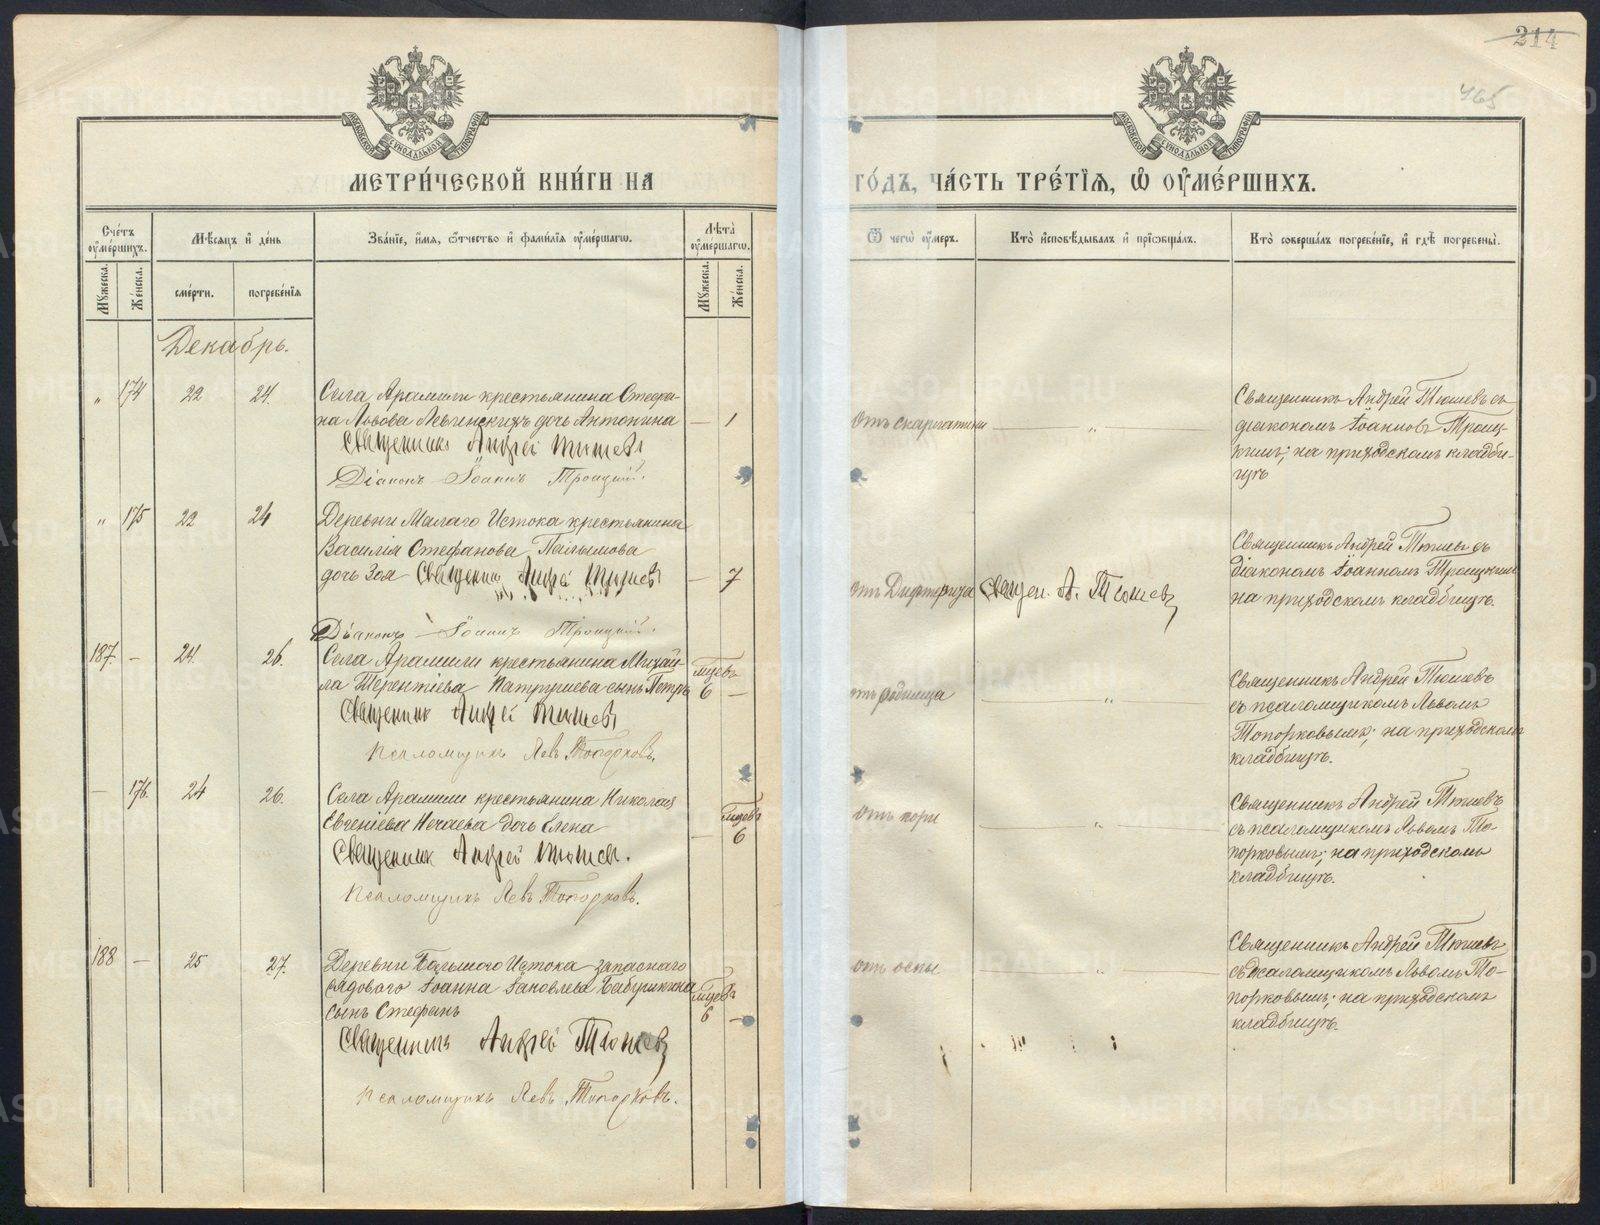 214
465
МЕТРИ́ЧЕСКОЙ КНИ́ГИ НА
ГО́ДЪ, ЧА́СТЬ ТРЕ́ТІѦ, Ѡ҆ ОУ҆МЕ́РШИХЪ.
Сче́тъ оу҆ме́ршихъ.
Мѣ́сѧцъ и҆ де́нь
Зва́нїе, и҆́мѧ, ѻ҆́тчество и҆ фами́лїѧ оу҆ме́ршагѡ.
Лѣ́та оу҆ме́ршагѡ.
Ѿ чегѡ̀ оу҆́меръ.
Кто̀ и҆сповѣ́дывалъ и҆ прїѡбща́лъ.
Кто̀ соверша́лъ погребе́нїе, и҆ гдѣ̀ погребены̀.
Мꙋ́жеска.
Же́нска.
сме́рти.
погребе́нїѧ
Мꙋ́жеска.
Же́нска.
Декабрь.
" 174 22 24.
Села Арамили крестьянина Стефа-
на Львова Левинскихъ дочь Антонина
— 1
Священникъ Андрей Тюшевъ
Діаконъ Іоаннъ Троицкій.
отъ скарлатины
— " —
Священникъ Андрей Тюшевъ съ
діакономъ Іоанномъ Троиц-
кимъ; на приходскомъ кладби-
щѣ
" 175 22 24
Деревни Малаго Истока крестьянина
Василія Стефанова
дочь Зоя Священникъ Андрей Тюшевъ
— 7
Діаконъ Іоаннъ Троицкій.
отъ Дифтерита
Священ. А. Тюшевъ
Священникъ Андрей Тюшевъ съ
діакономъ Іоанномъ Троицкимъ
на приходскомъ кладбищѣ.
187 — 24. 26.
Села Арамили крестьянина Михаи-
ла Терентіева Патрушева сынъ Петръ
мцевъ
6 —
Священникъ Андрей Тюшевъ
Псаломщикъ Левъ Топорковъ.
отъ родимца
— " —
Священникъ Андрей Тюшевъ
съ псаломщикомъ Львомъ
Топорковымъ; на приходскомъ
кладбищѣ.
— 176. 24 26.
Села Арамили крестьянина Николая
Евгеніева Нечаева дочь Елена
мцевъ
— 6
Священникъ Андрей Тюшевъ.
Псаломщикъ Левъ Топорковъ.
отъ кори
— " —
Священникъ Андрей Тюшевъ
съ псаломщикомъ Львомъ То-
порковымъ; на приходскомъ
кладбищѣ.
188 — 25 27.
Деревни Большого Истока запаснаго
рядового Іоанна Іаковлева Бабушкина
сынъ Стефанъ
мцевъ
6 —
Священникъ Андрей Тюшевъ
Псаломщикъ Левъ Топорковъ.
отъ оспы
— " —
Священникъ Андрей Тюшевъ
съ псаломщикомъ Львомъ То-
порковымъ; на приходскомъ
кладбищѣ.
METRIKI.GASO-URAL.RU